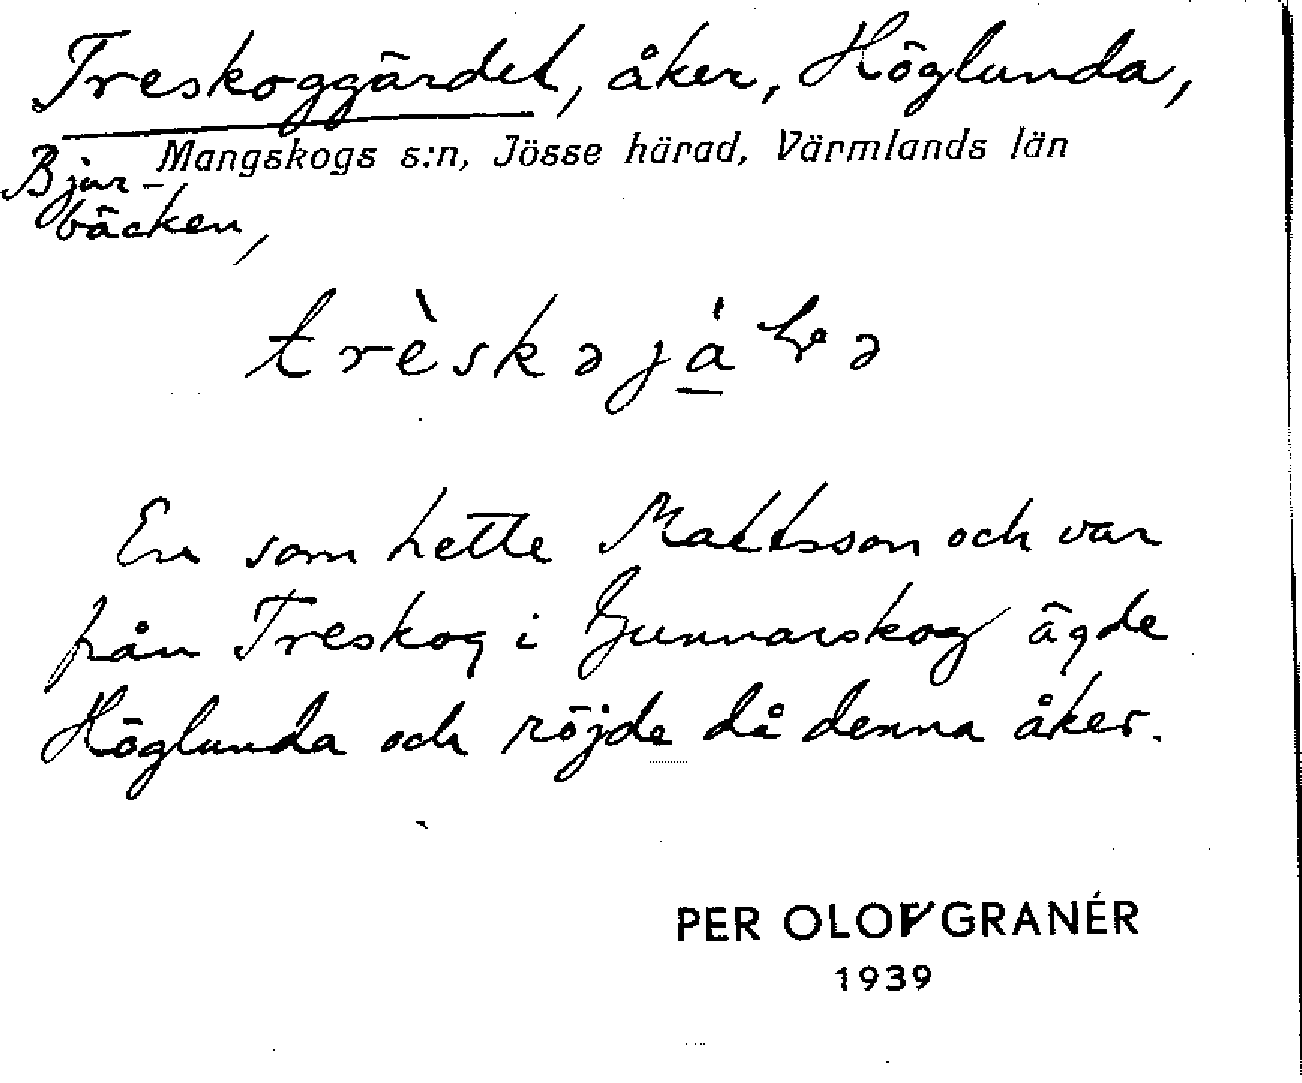 Treskoggärdet, åker, Höglunda,
Mangskogs s:n, Jösse härad, Värmlands län
Bjur-
bäcken,
En som hette Mattsson och var
från Treskog i Gunnarskog ägde
Höglunda och röjde då denna åker.
PER OLOV GRANÉR
1939